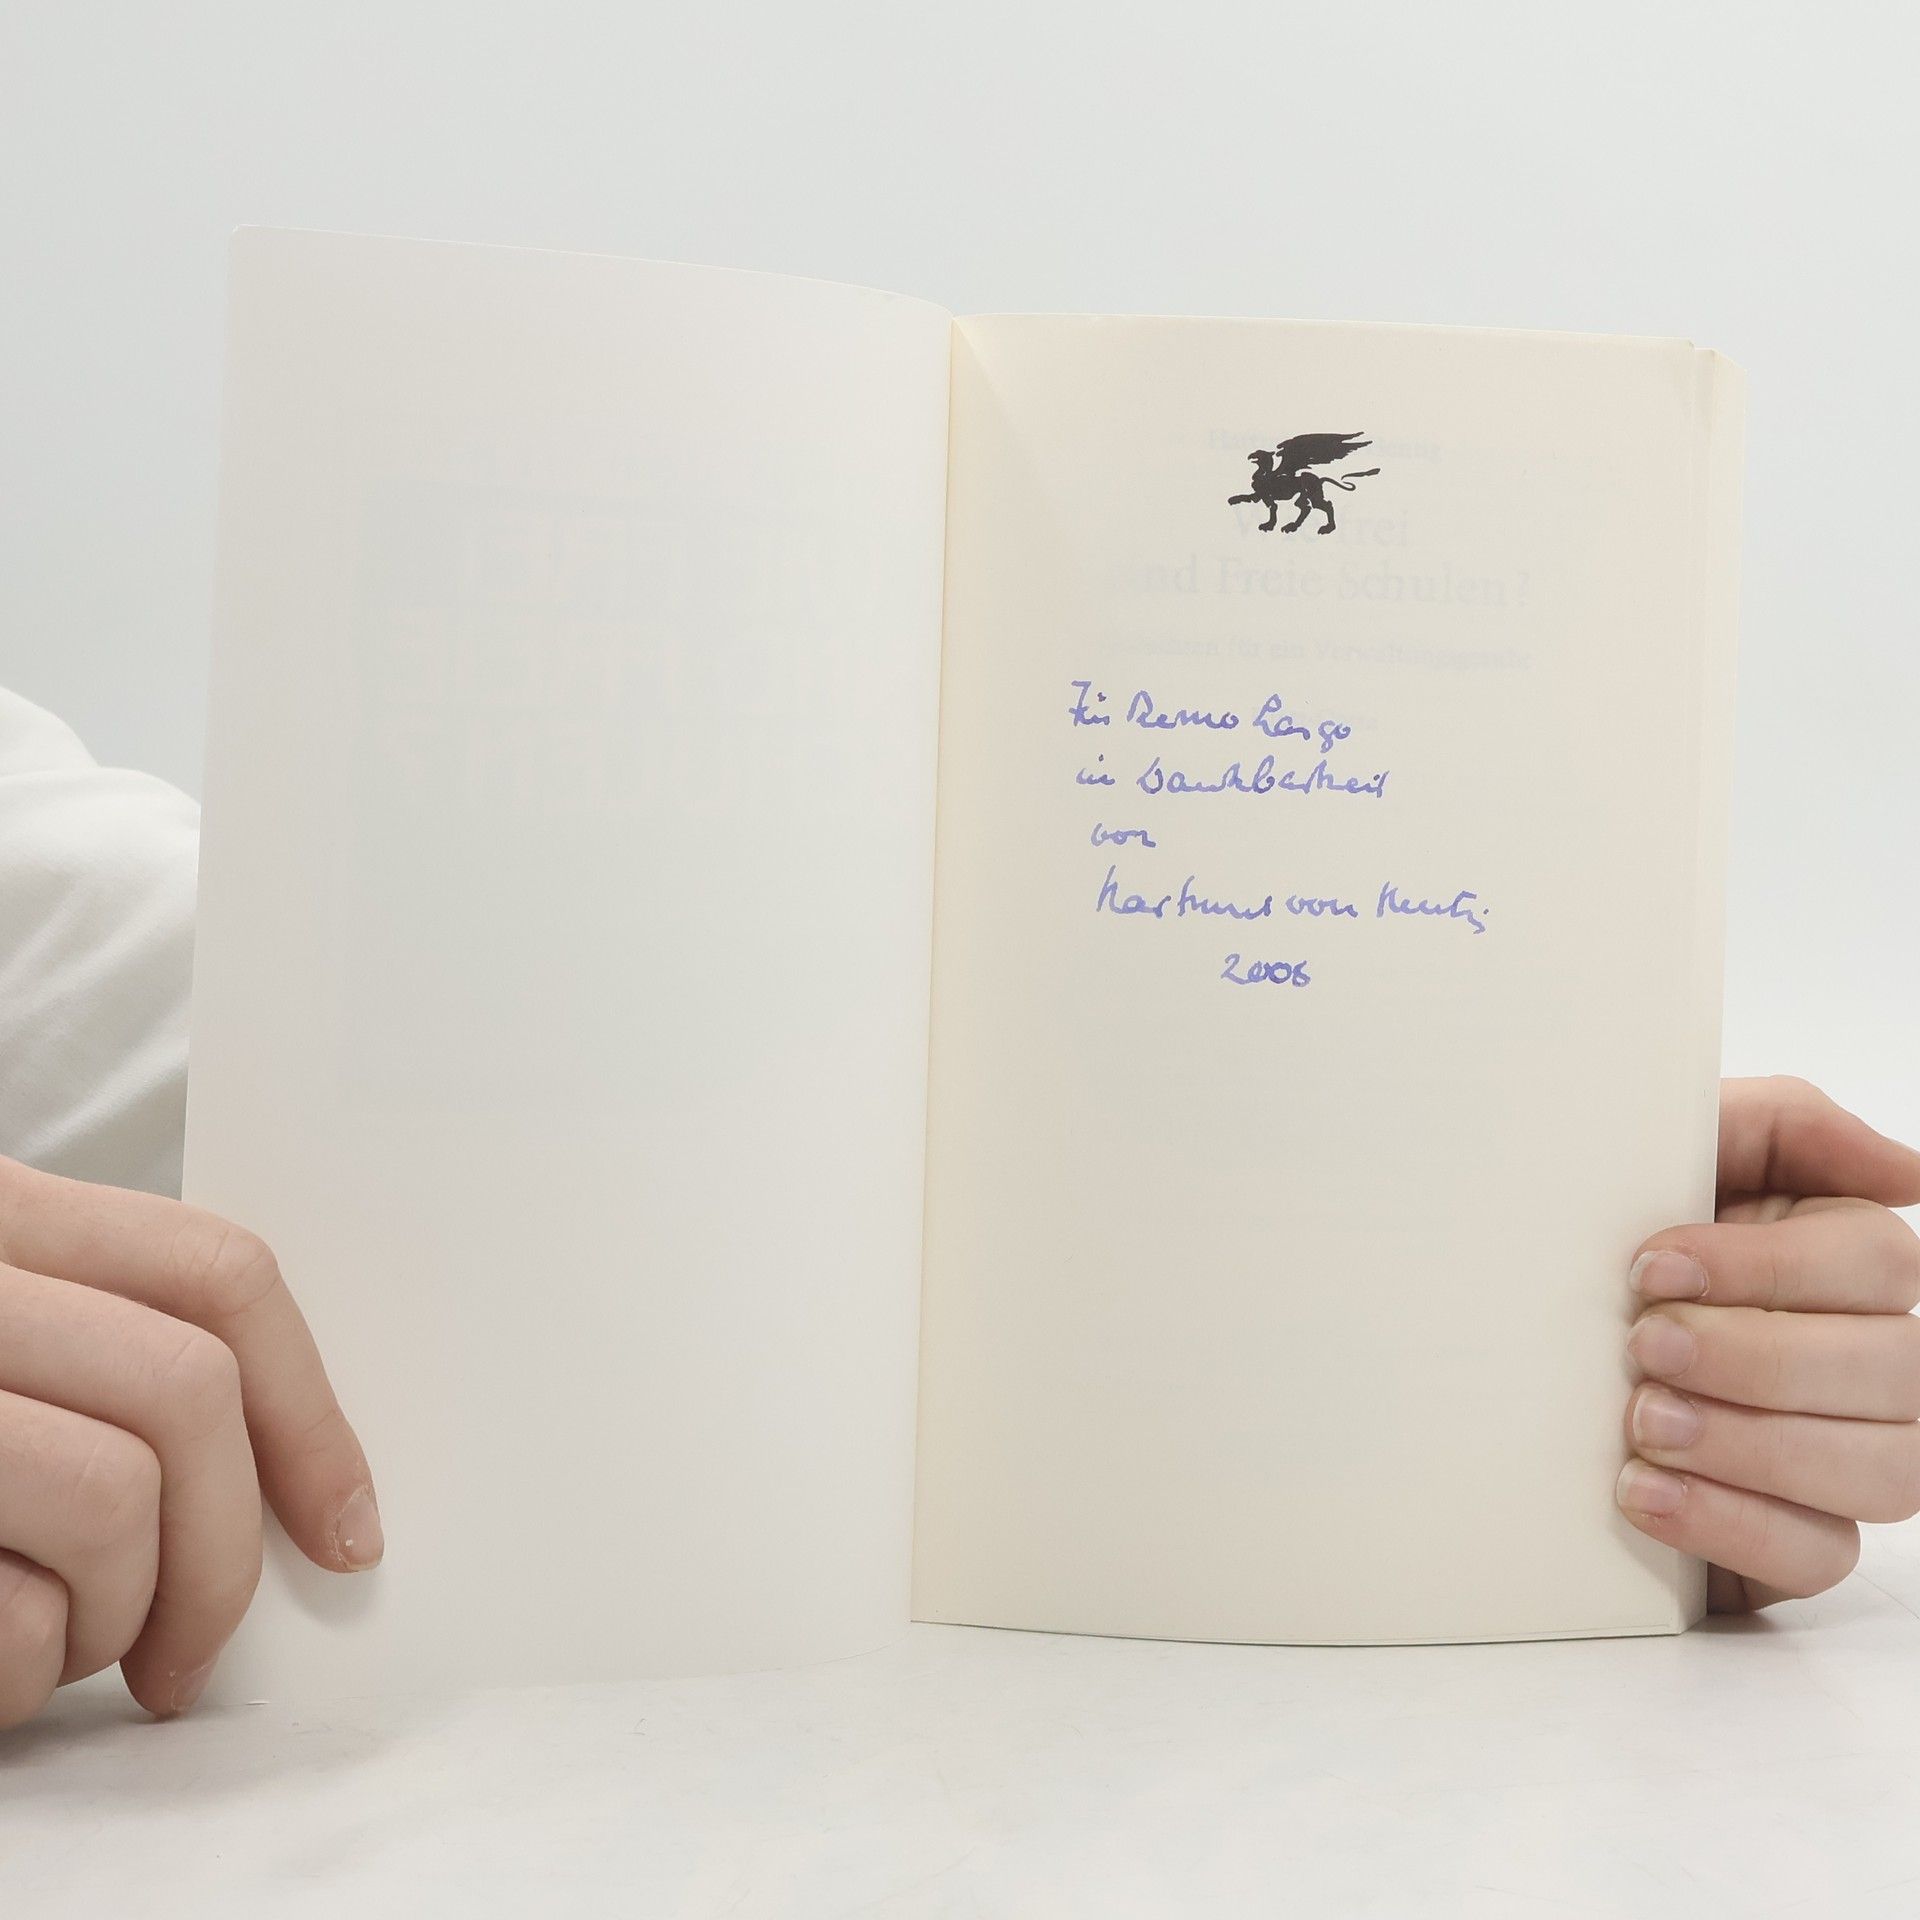 Wie frei
sind Freie Schulen?
für ein Verwaltungsgericht
Für Remo Largo
in Dankbarkeit
von
Hartmut von Hentig
2006